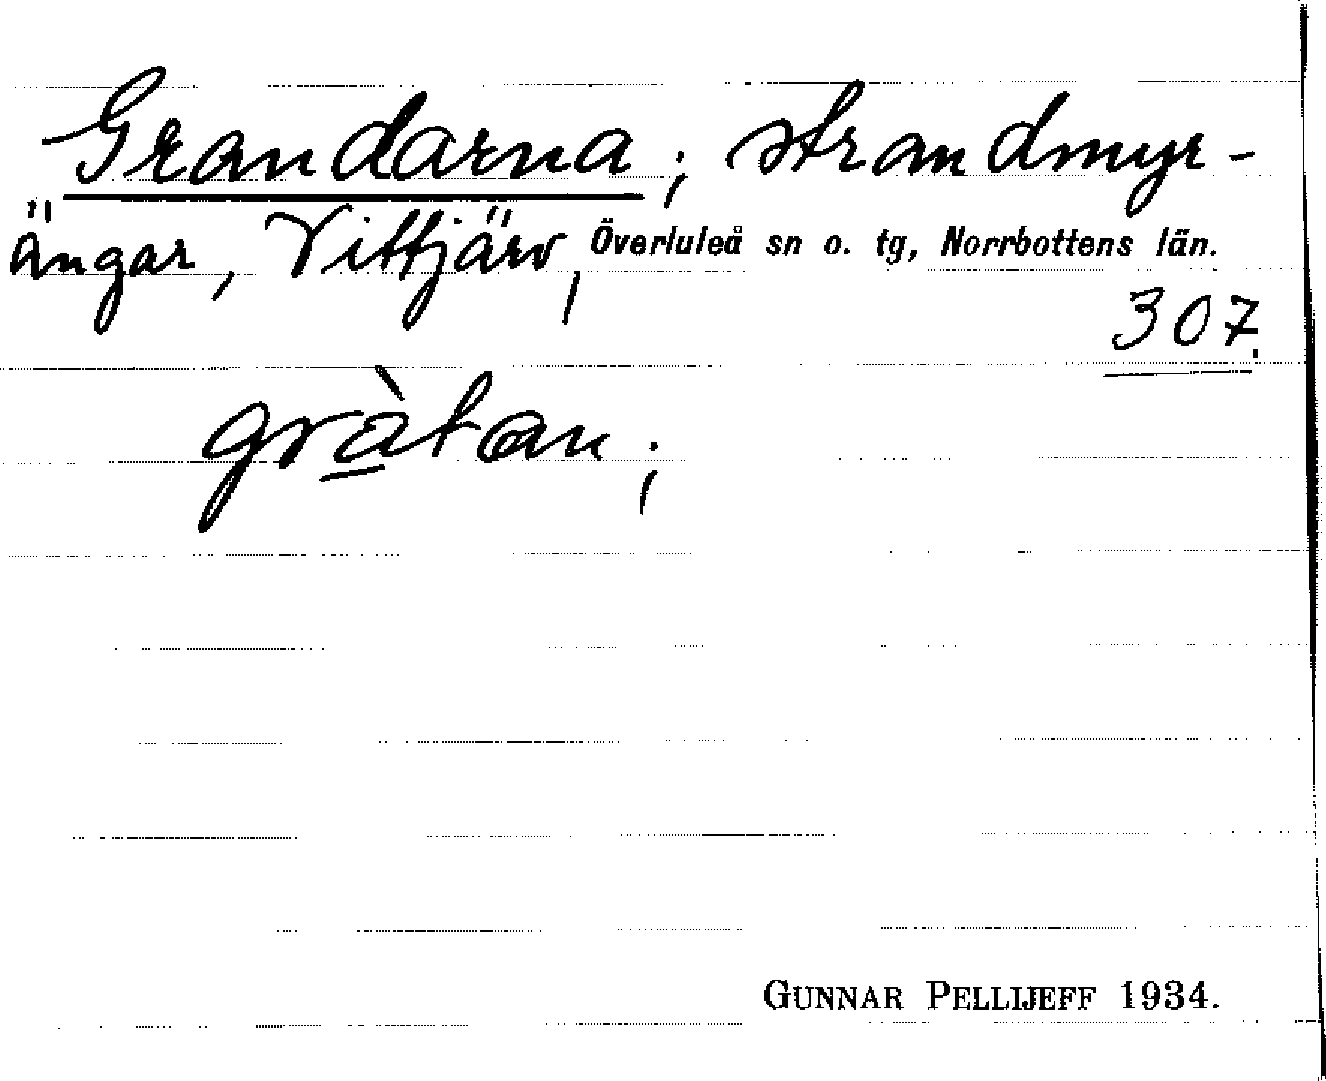 Grandarna; strandmyr-
ängar, Vittjärv, Överluleå sn o. tg, Norrbottens län.
307.
gràtan;
GUNNAR PELLIJEFF 1934.